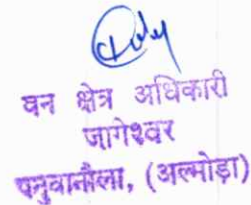 वन क्षेत्र अधिकारी
जागेश्वर
पनुवानौला, (अल्मोड़ा)